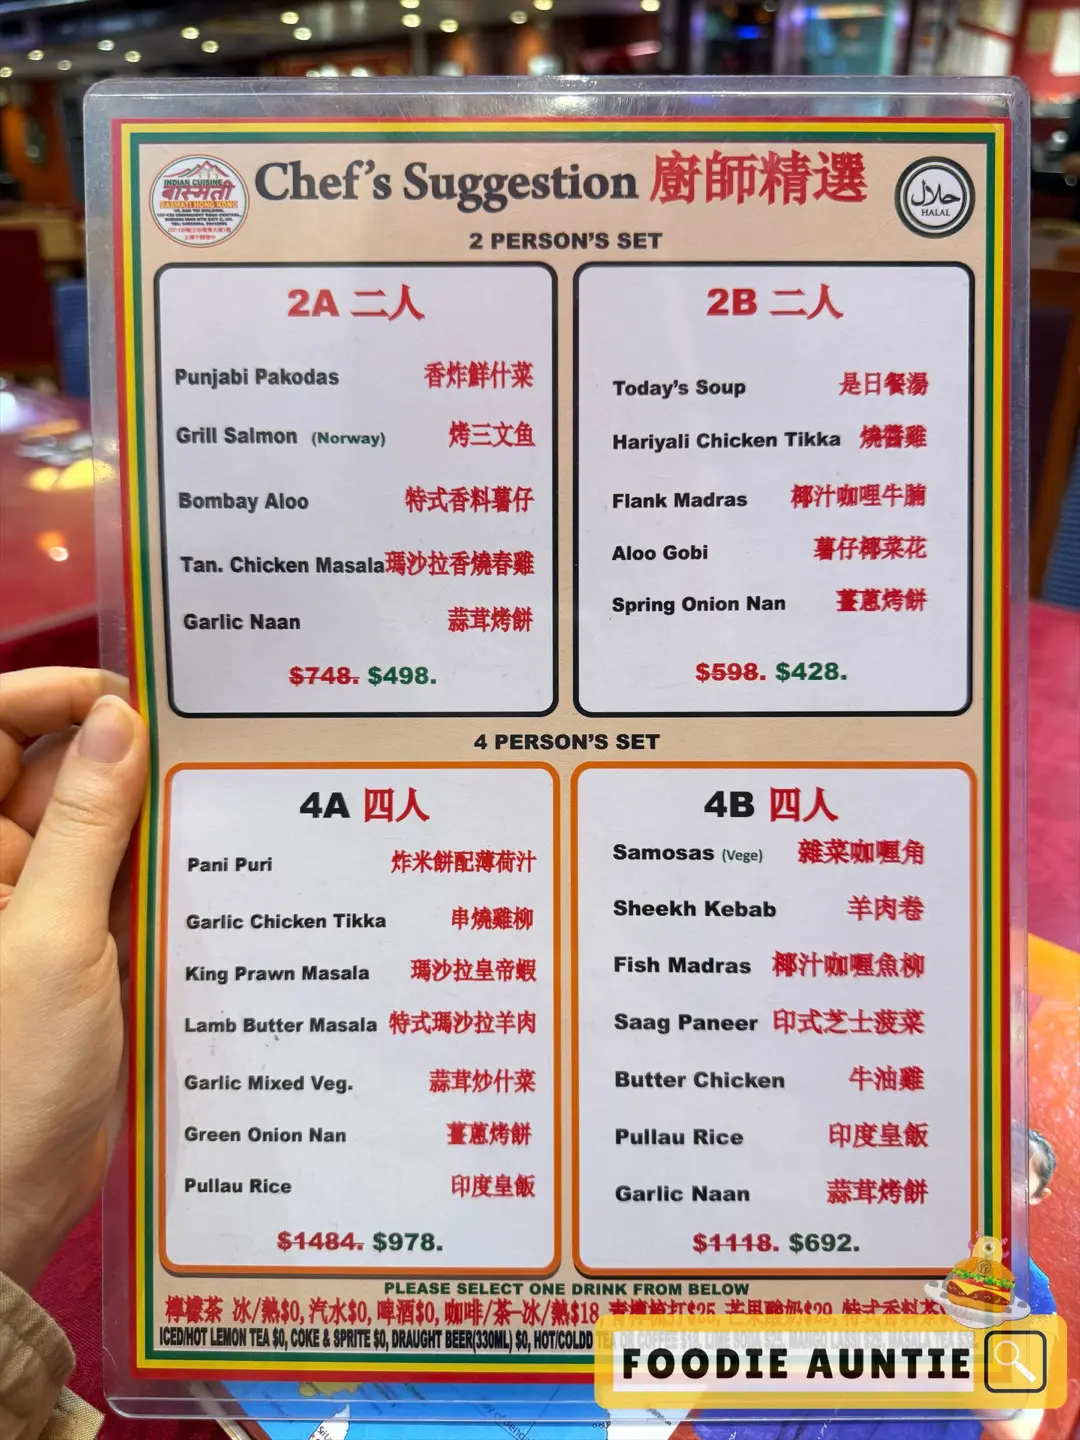 INDIAN CUISINE
बासमती
BASMATI HONG KONG
Chef's Suggestion 廚師精選
حلال
HALAL
2 PERSON'S SET
2A 二人
Punjabi Pakodas 香炸鮮什菜
Grill Salmon (Norway) 烤三文鱼
Bombay Aloo 特式香料薯仔
Tan. Chicken Masala 瑪沙拉香燒春雞
Garlic Naan 蒜茸烤餅
$748. $498.
2B 二人
Today's Soup 是日餐湯
Hariyali Chicken Tikka 燒醬雞
Flank Madras 椰汁咖哩牛腩
Aloo Gobi 薯仔椰菜花
Spring Onion Nan 薑蔥烤餅
$598. $428.
4 PERSON'S SET
4A 四人
Pani Puri 炸米餅配薄荷汁
Garlic Chicken Tikka 串燒雞柳
King Prawn Masala 瑪沙拉皇帝蝦
Lamb Butter Masala 特式瑪沙拉羊肉
Garlic Mixed Veg. 蒜茸炒什菜
Green Onion Nan 薑蔥烤餅
Pullau Rice 印度皇飯
$1484. $978.
4B 四人
Samosas (Vege) 雜菜咖喱角
Sheekh Kebab 羊肉卷
Fish Madras 椰汁咖喱魚柳
Saag Paneer 印式芝士菠菜
Butter Chicken 牛油雞
Pullau Rice 印度皇飯
Garlic Naan 蒜茸烤餅
$1118. $692.
PLEASE SELECT ONE DRINK FROM BELOW
檸檬茶 冰/熱$0, 汽水$0, 啤酒$0, 咖啡/茶-冰/熱$18 青檸梳打$25, 芒果酸奶$29, 特式香料茶
ICED/HOT LEMON TEA $0, COKE & SPRITE $0, DRAUGHT BEER(330ML) $0, HOT/COLDD TEA OR COFFEE $18, LIME SODA $25, MANGO LASSI $29, MASALA TEA
FOODIE AUNTIE